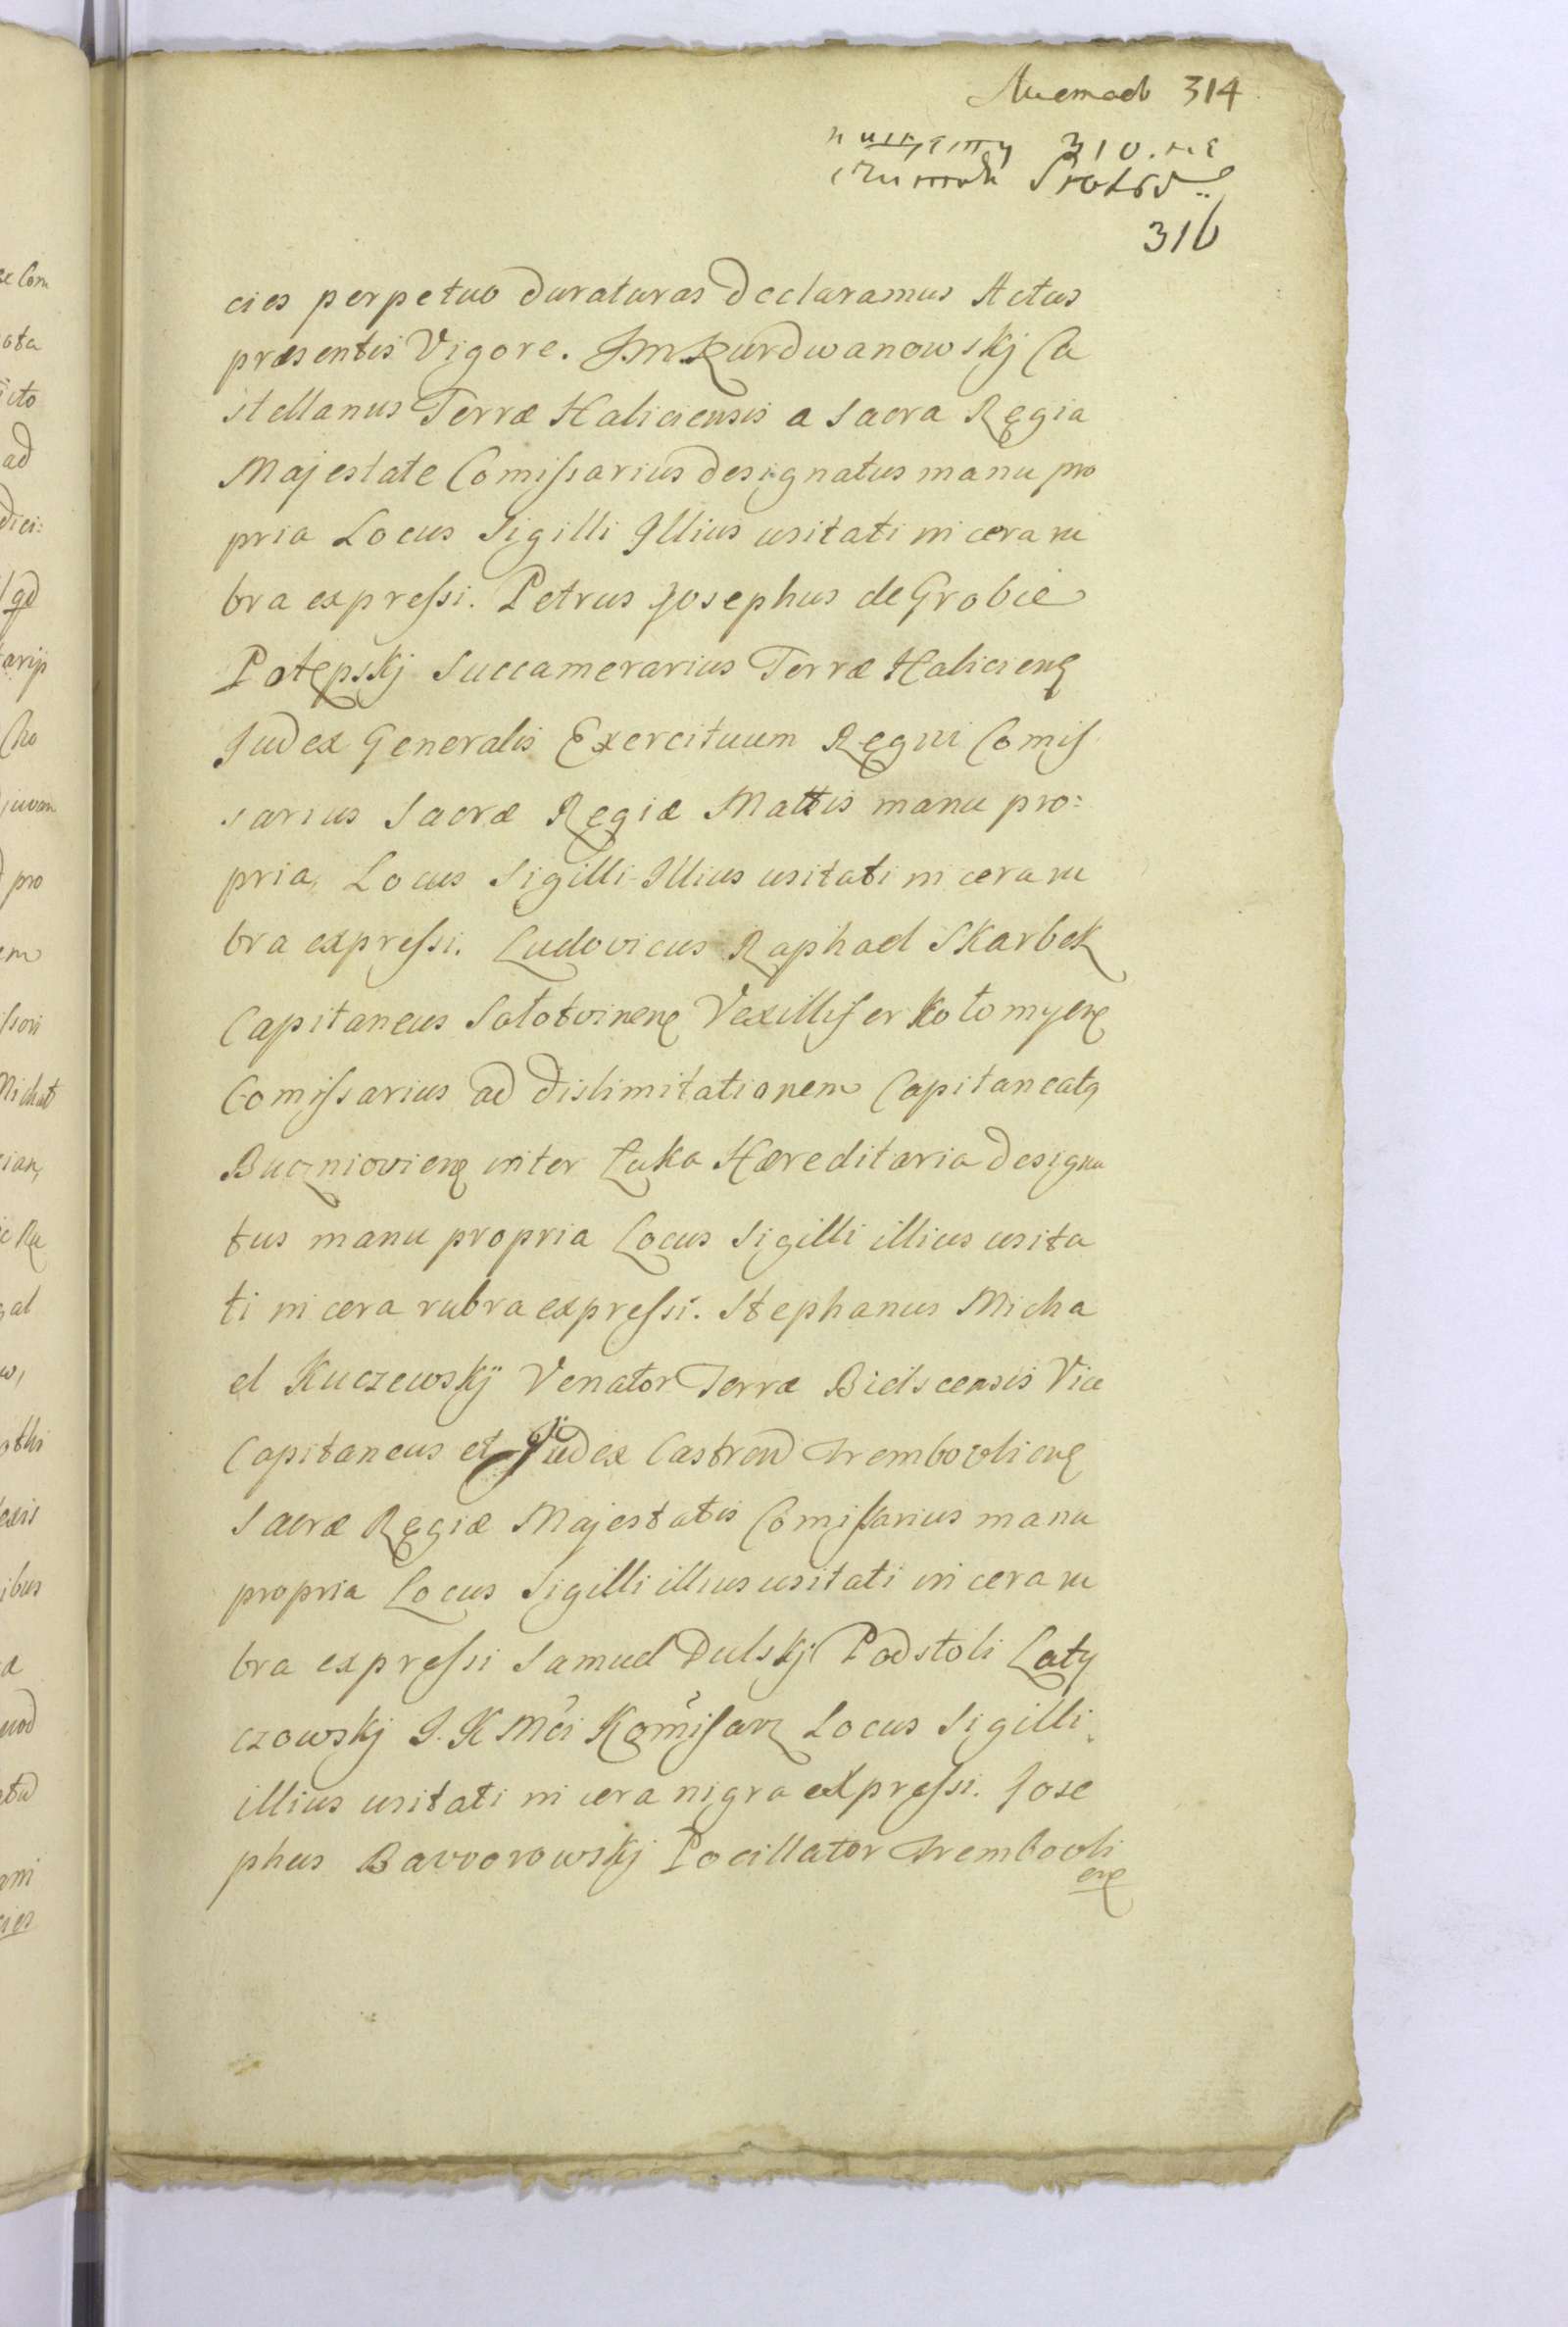 314
310. на
316
cies perpetuo duraturas declaramus Actus
præsentis Vigore. JmKurdwanowskj Ca
stellanus Terræ Haliciensis a Sacra Regia
Majestate Comiſsarius designatus manu pro
pria Locus Sigilli Jllius usitati in cera ru
bra expreſsi. Petrus Josephus de Grobie
Potępskj Succamerarius Terræ Halicienę
Judex Generalis Exercituum Regni Comiſ
sarius Sacræ Regiæ Mattis manu pro:
pria, Locus Sigilli Jllius usitati in cera ru
bra expreſsi. Ludovicus Raphael Skarbek
Capitaneus Sołotvinenę Vexillifer Kołomyenę
Comiſsarius ad dislimitationem Capitaneatq
Buczniovienę inter Łuka Hæreditaria designa
tus manu propria Locus Sigilli illius usita
ti in cera rubra expreſsi. Stephanus Micha
el Kuczewskÿ Venator Terræ Bielscensis Vice
Capitaneus et Judex Castren Trembovlienę
Sacræ Regiæ Majestatis Comiſsarius manu
propria Locus Sigilli illius usitati in cera ru
bra expreſsi Samuel Dulskj Podstoli Laty
czowskj J. K Mći Komiſarz Locus Sigilli
illius usitati in cera nigra expreſsi. Jose
phus Bavvorowskj Pocillator Trembovli
enę